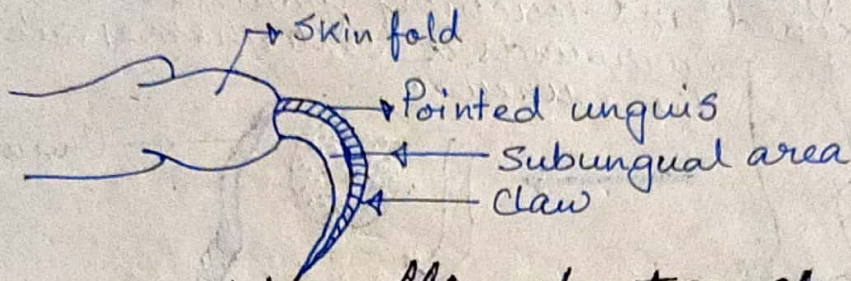 Skin fold
Pointed unguis
Subungual area
Claw